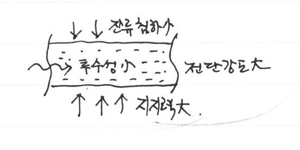 잔류침하小
투수성小
전단강도大
지지력大